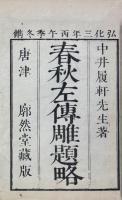 弘化三年丙午季冬鐫
中井履軒先生著
春秋左傳雕題略
唐津　廓然堂藏版